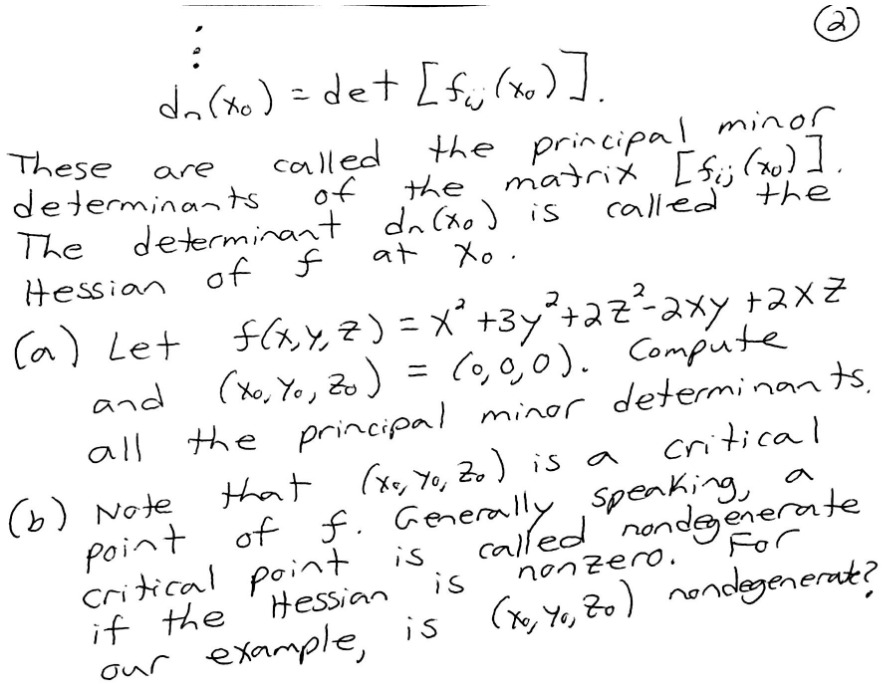 ②
⋮
dₙ(x₀) = det [fᵢⱼ(x₀)].
These are called the principal minor
determinants of the matrix [fᵢⱼ(x₀)].
The determinant dₙ(x₀) is called the
Hessian of f at x₀.
(a) Let f(x,y,z) = x²+3y²+2z²-2xy+2xz
and (x₀,y₀,z₀) = (0,0,0). Compute
all the principal minor determinants.
(b) Note that (x₀,y₀,z₀) is a critical
point of f. Generally speaking, a
critical point is called nondegenerate
if the Hessian is nonzero. For
our example, is (x₀,y₀,z₀) nondegenerate?